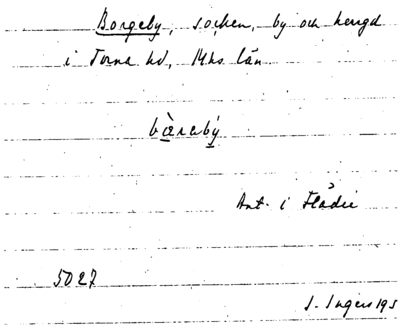 Borgeby, socken, by och herrgd
i Torna hd, Mhs län
bàrabý
Ant. i Flädie
5027
S. Ingers 195